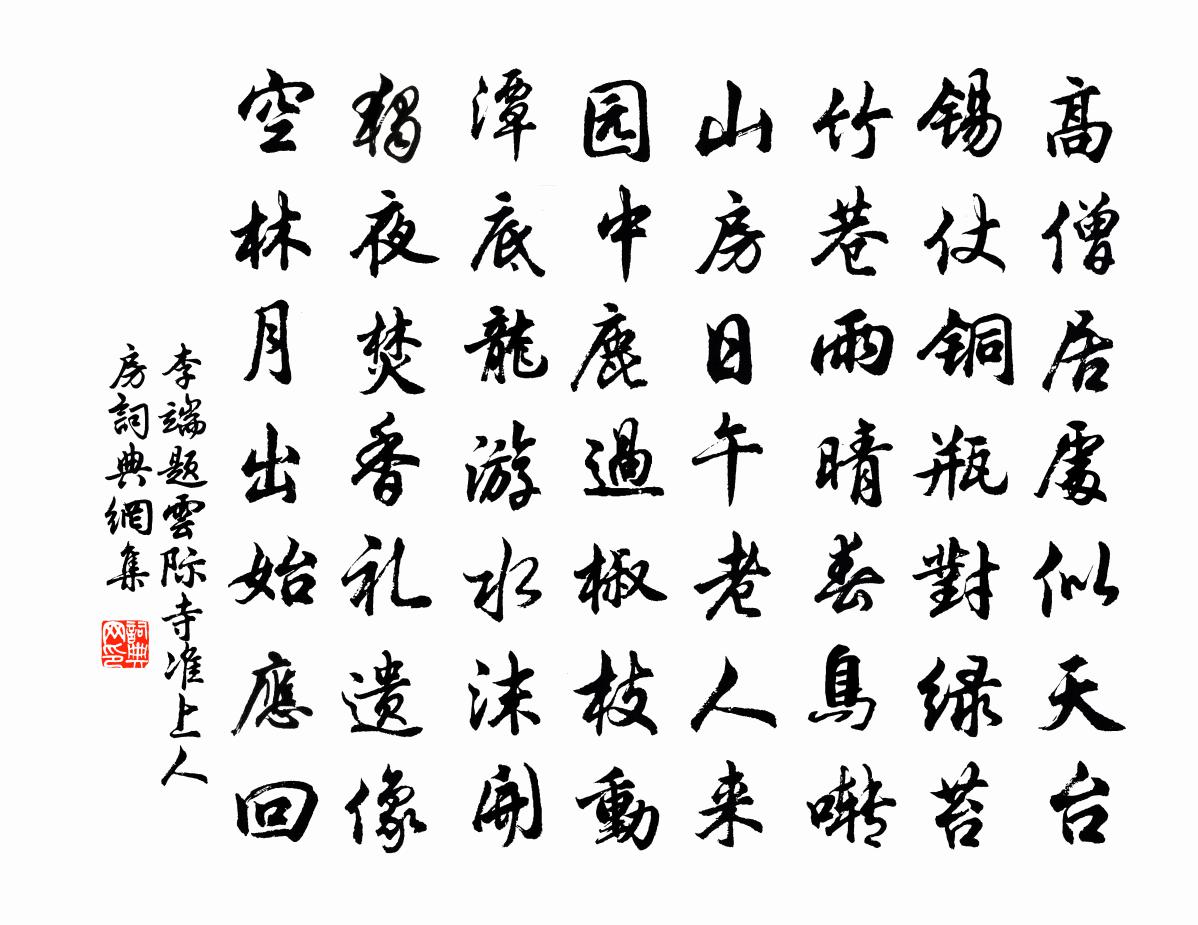 高僧居處似天台
锡仗铜瓶對绿苔
竹巷雨晴春鳥啭
山房日午老人来
园中鹿過椒枝動
潭底龍游水沫開
獨夜焚香礼遗像
空林月出始應回
李端题雲际寺准上人
房詞典網集
詞典
网印